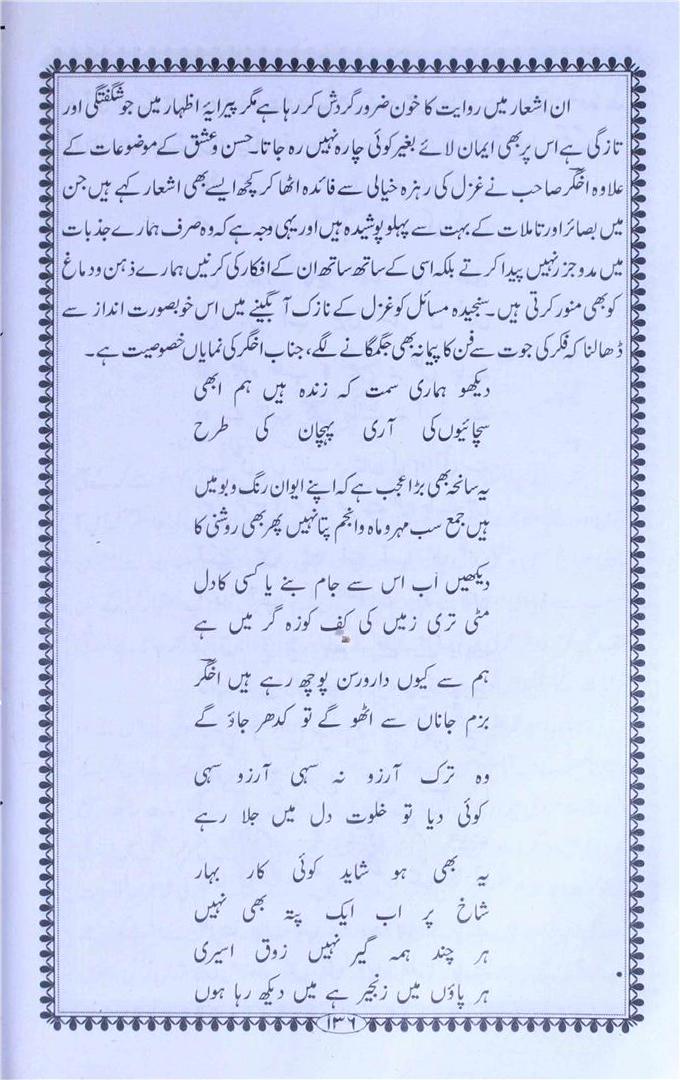 ان اشعار میں روایت کا خون ضرور گردش کر رہا ہے مگر پیرایۂ اظہار میں جو شگفتگی اور
تازگی ہے اس پر بھی ایمان لائے بغیر کوئی چارہ نہیں رہ جاتا۔ حسن و عشق کے موضوعات کے
علاوہ اخگر صاحب نے غزل کی ریزہ خیالی سے فائدہ اٹھا کر کچھ ایسے بھی اشعار کہے ہیں جن
میں بصائر اور تاملات کے بہت سے پہلو پوشیدہ ہیں اور یہی وجہ ہے کہ وہ صرف ہمارے جذبات
میں مدوجزر نہیں پیدا کرتے بلکہ اسی کے ساتھ ساتھ ان کے افکار کی کرنیں ہمارے ذہن و دماغ
کو بھی منور کرتی ہیں۔ سنجیدہ مسائل کو غزل کے نازک آبگینے میں اس خوبصورت انداز سے
ڈھالنا کہ فکر کی جوت سے فن کا پیمانہ بھی جگمگانے لگے، جناب اخگر کی نمایاں خصوصیت ہے۔
دیکھو ہماری سمت کہ زندہ ہیں ہم ابھی
سچائیوں کی آری پہچان کی طرح
یہ سانحہ بھی بڑا عجب ہے کہ اپنے ایوان رنگ و بو میں
ہیں جمع سب مہر و ماہ و انجم پتا نہیں پھر بھی روشنی کا
دیکھیں اب اس سے جام بنے یا کسی کا دل
مٹی تری زمیں کی کف کوزہ گر میں ہے
ہم سے کیوں دار و رسن پوچھ رہے ہیں اخگر
بزم جاناں سے اٹھو گے تو کدھر جاؤ گے
وہ ترک آرزو نہ سہی آرزو سہی
کوئی دیا تو خلوت دل میں جلا رہے
یہ بھی ہو شاید کوئی کار بہار
شاخ پر اب ایک پتہ بھی نہیں
ہر چند ہمہ گیر نہیں زوق اسیری
ہر پاؤں میں زنجیر ہے میں دیکھ رہا ہوں
۱۳۶